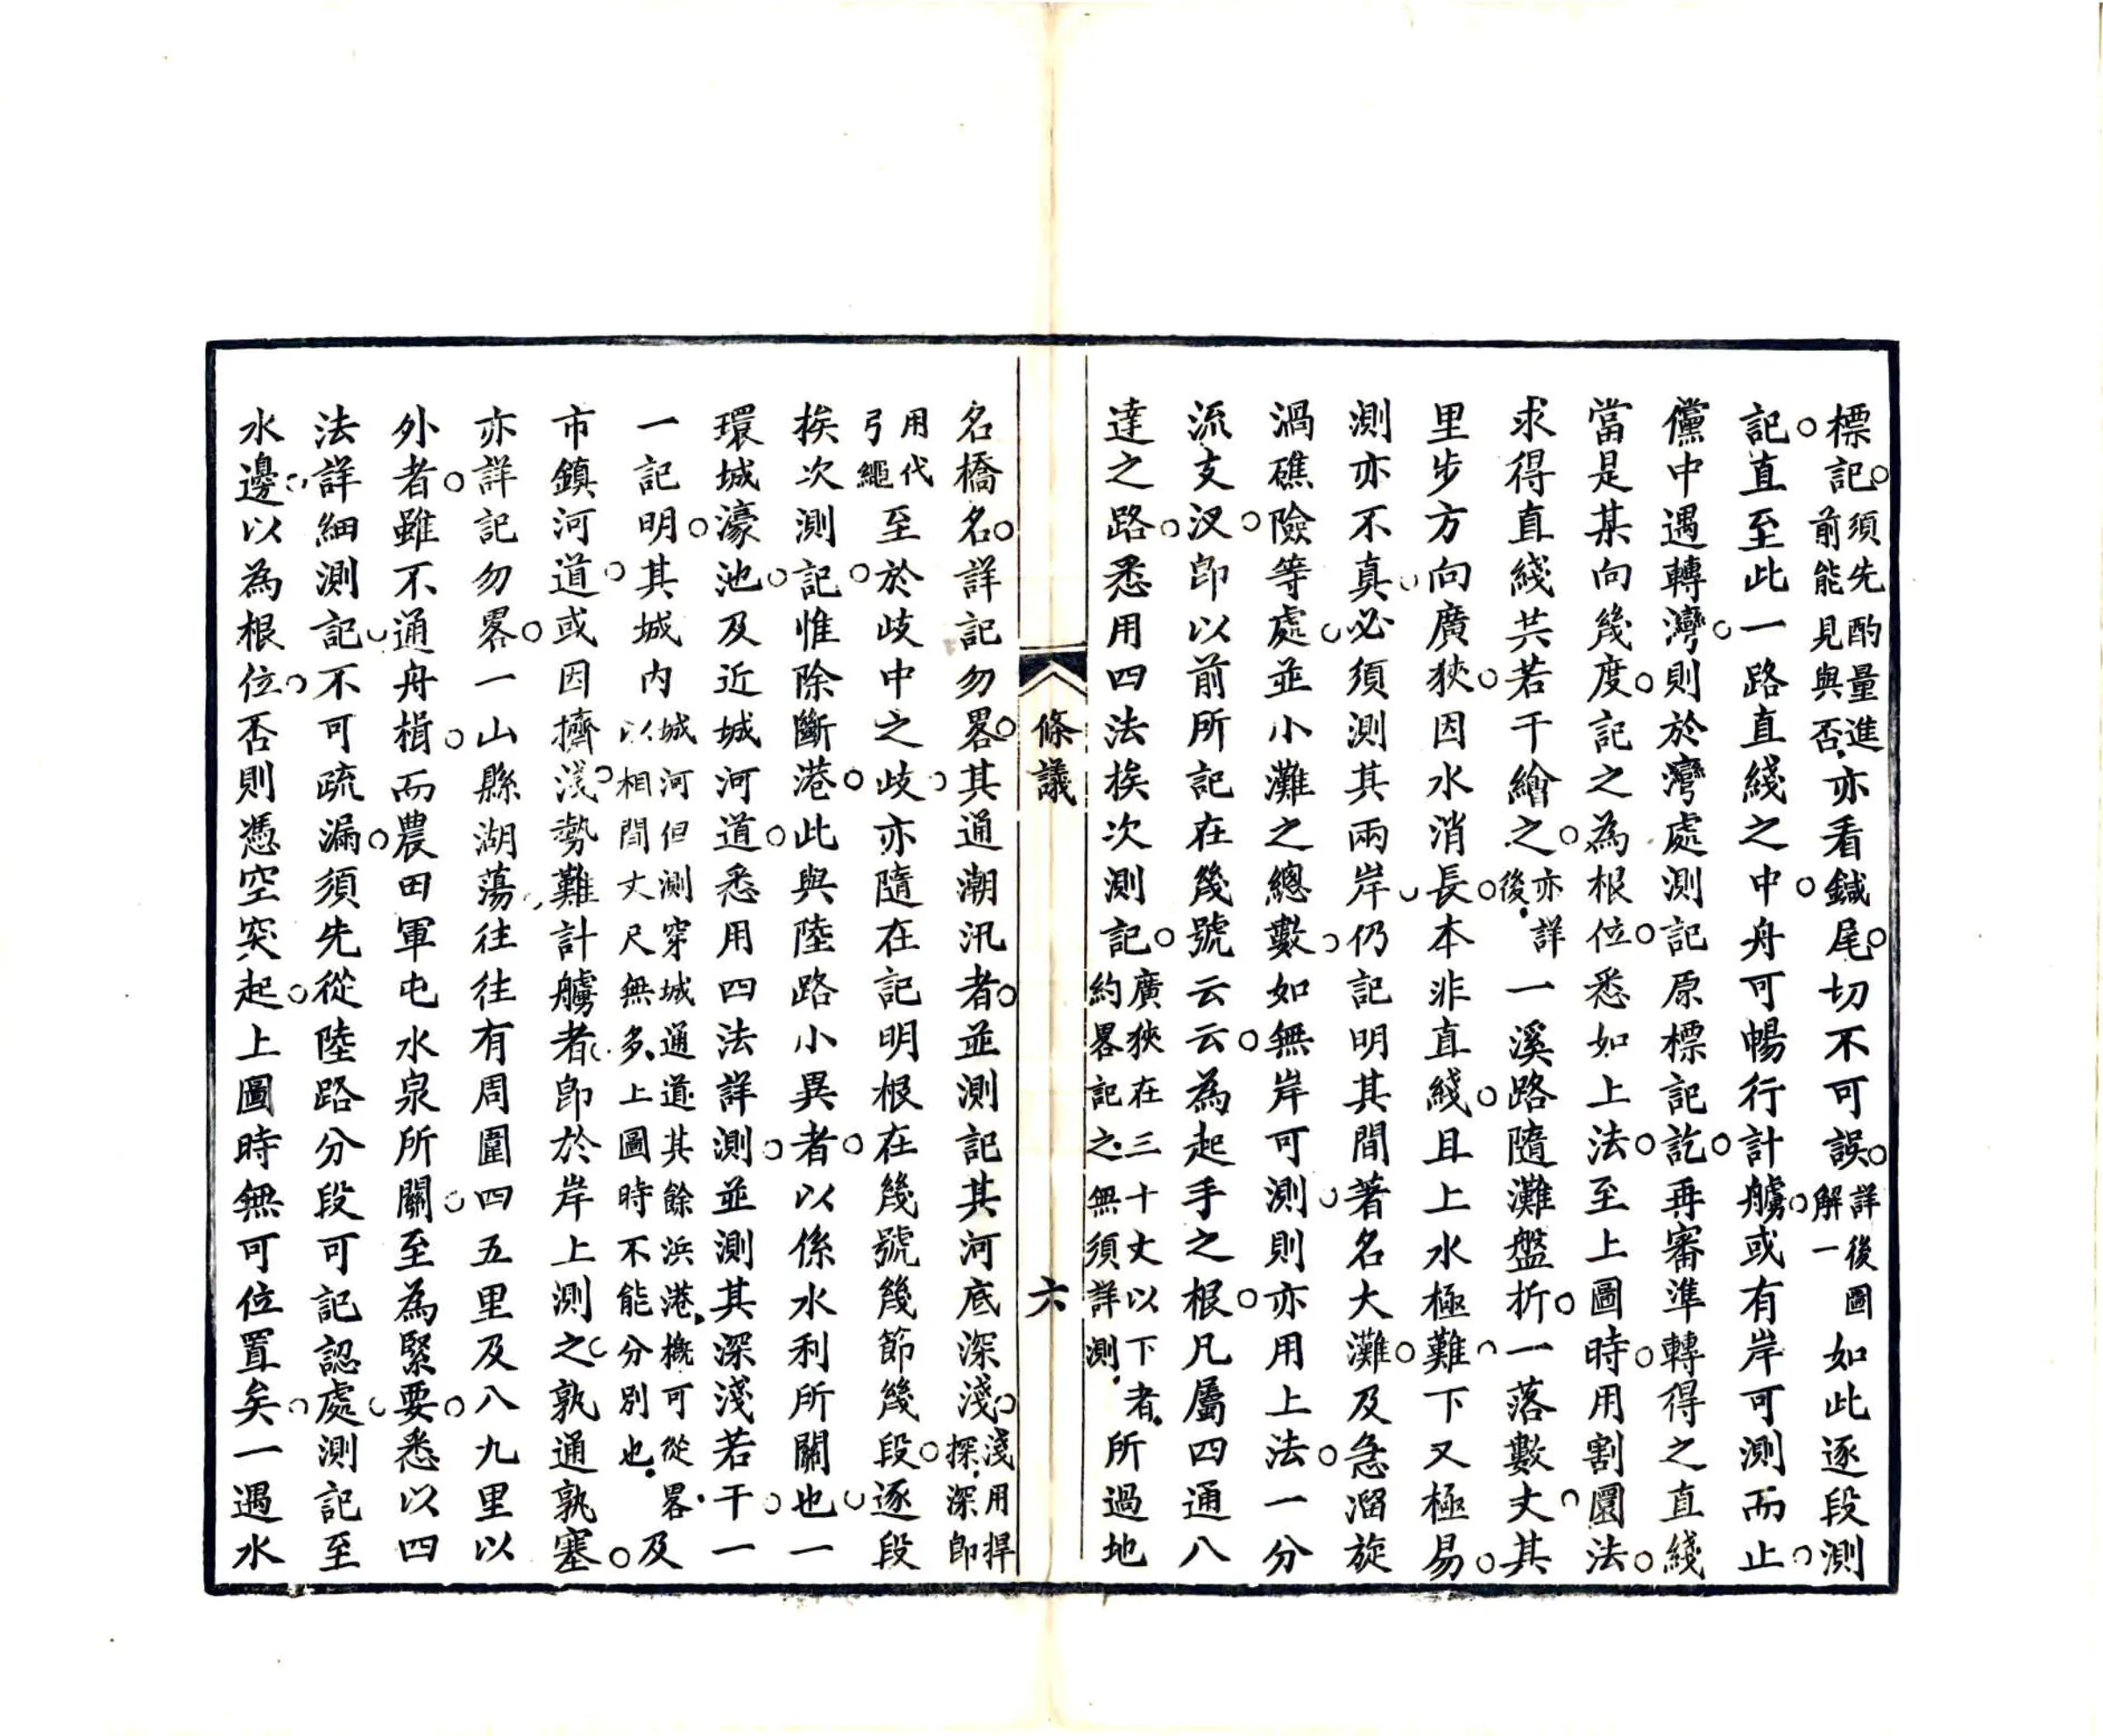 標記須先酌量進前能見與否亦看鍼尾切不可誤詳後圖解一如此逐段測
記直至此一路直綫之中舟可暢行計艣或有岸可測而止
儻中遇轉灣則於灣處測記原標記訖再審準轉得之直綫
當是某向幾度記之為根位悉如上法至上圖時用割圜法
求得直綫共若干繪之亦詳後一溪路隨灘盤折一落數丈其
里步方向廣狹因水消長本非直綫且上水極難下又極易
測亦不真必須測其兩岸仍記明其間著名大灘及急溜旋
渦礁險等處並小灘之總數如無岸可測則亦用上法一分
流支汊卽以前所記在幾號云云為起手之根凡屬四通八
達之路悉用四法挨次測記廣狹在三十丈以下者約畧記之無須詳測所過地
條議
六
名橋名詳記勿畧其通潮汛者並測記其河底深淺淺用捍探深卽
用代弓繩至於歧中之歧亦隨在記明根在幾號幾節幾段逐段
挨次測記惟除斷港此與陸路小異者以係水利所關也一
環城濠池及近城河道悉用四法詳測並測其深淺若干一
一記明其城內城河但測穿城通道其餘浜港概可從畧以相間丈尺無多上圖時不能分別也及
市鎮河道或因擠淺勢難計艣者卽於岸上測之孰通孰塞
亦詳記勿畧一山縣湖蕩往往有周圍四五里及八九里以
外者雖不通舟楫而農田軍屯水泉所關至為緊要悉以四
法詳細測記不可疏漏須先從陸路分段可記認處測記至
水邊以為根位否則憑空突起上圖時無可位置矣一遇水